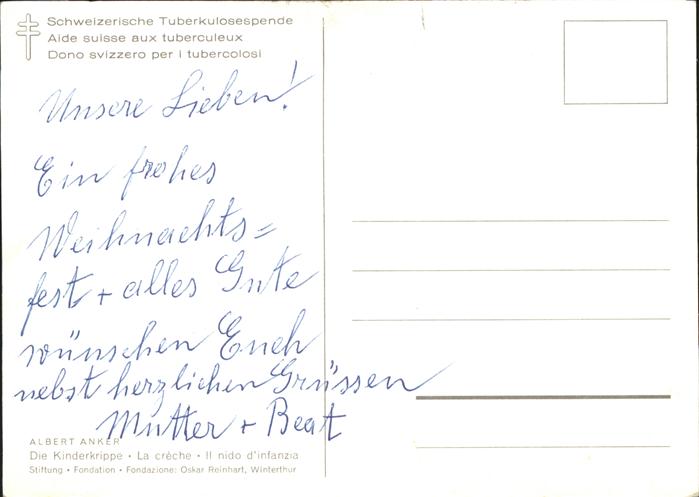 Schweizerische Tuberkulosespende
Aide suisse aux tuberculeux
Dono svizzero per i tubercolosi
Unsere Lieben!
Ein frohes
Weihnachts=
fest + alles Gute
wünschen Euch
nebst herzlichen Grüssen
Mutter + Beat
ALBERT ANKER
Die Kinderkrippe • La crèche • Il nido d'infanzia
Stiftung • Fondation • Fondazione: Oskar Reinhart, Winterthur